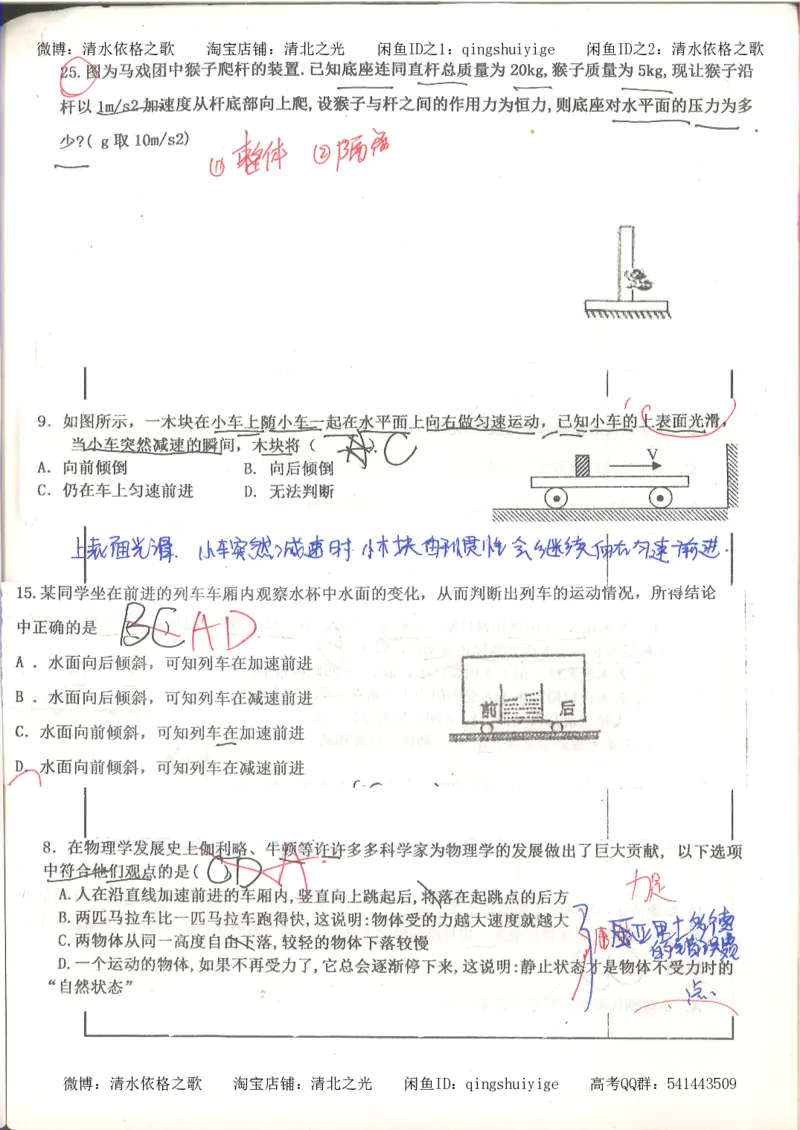 微博：清水依格之歌 淘宝店铺：清北之光 闲鱼ID之1：qingshuiyige 闲鱼ID之2：清水依格之歌
25.图为马戏团中猴子爬杆的装置.已知底座连同直杆总质量为20kg,猴子质量为5kg,现让猴子沿
杆以1m/s2加速度从杆底部向上爬,设猴子与杆之间的作用力为恒力,则底座对水平面的压力为多
少?( g取10m/s2)
(1)整体 (2)隔离
9. 如图所示，一木块在小车上随小车一起在水平面上向右做匀速运动，已知小车的上表面光滑，
当小车突然减速的瞬间，木块将（ A ）. C
A. 向前倾倒 B. 向后倾倒
C. 仍在车上匀速前进 D. 无法判断
V
上表面光滑. 小车突然减速时.小木块由到惯性会继续向右匀速前进.
15.某同学坐在前进的列车车厢内观察水杯中水面的变化，从而判断出列车的运动情况，所得结论
中正确的是 BC AD
A ．水面向后倾斜，可知列车在加速前进
B ．水面向后倾斜，可知列车在减速前进
C．水面向前倾斜，可知列车在加速前进
D．水面向前倾斜，可知列车在减速前进
前 后
8．在物理学发展史上伽利略、牛顿等许许多多科学家为物理学的发展做出了巨大贡献，以下选项
中符合他们观点的是( CD A
A.人在沿直线加速前进的车厢内,竖直向上跳起后,将落在起跳点的后方
B.两匹马拉车比一匹马拉车跑得快,这说明:物体受的力越大速度就越大
C.两物体从同一高度自由下落,较轻的物体下落较慢
D.一个运动的物体,如果不再受力了,它总会逐渐停下来,这说明:静止状态才是物体不受力时的
“自然状态”
力是
亚里士多德
的错误观
点.
微博：清水依格之歌 淘宝店铺：清北之光 闲鱼ID：qingshuiyige 高考QQ群：541443509